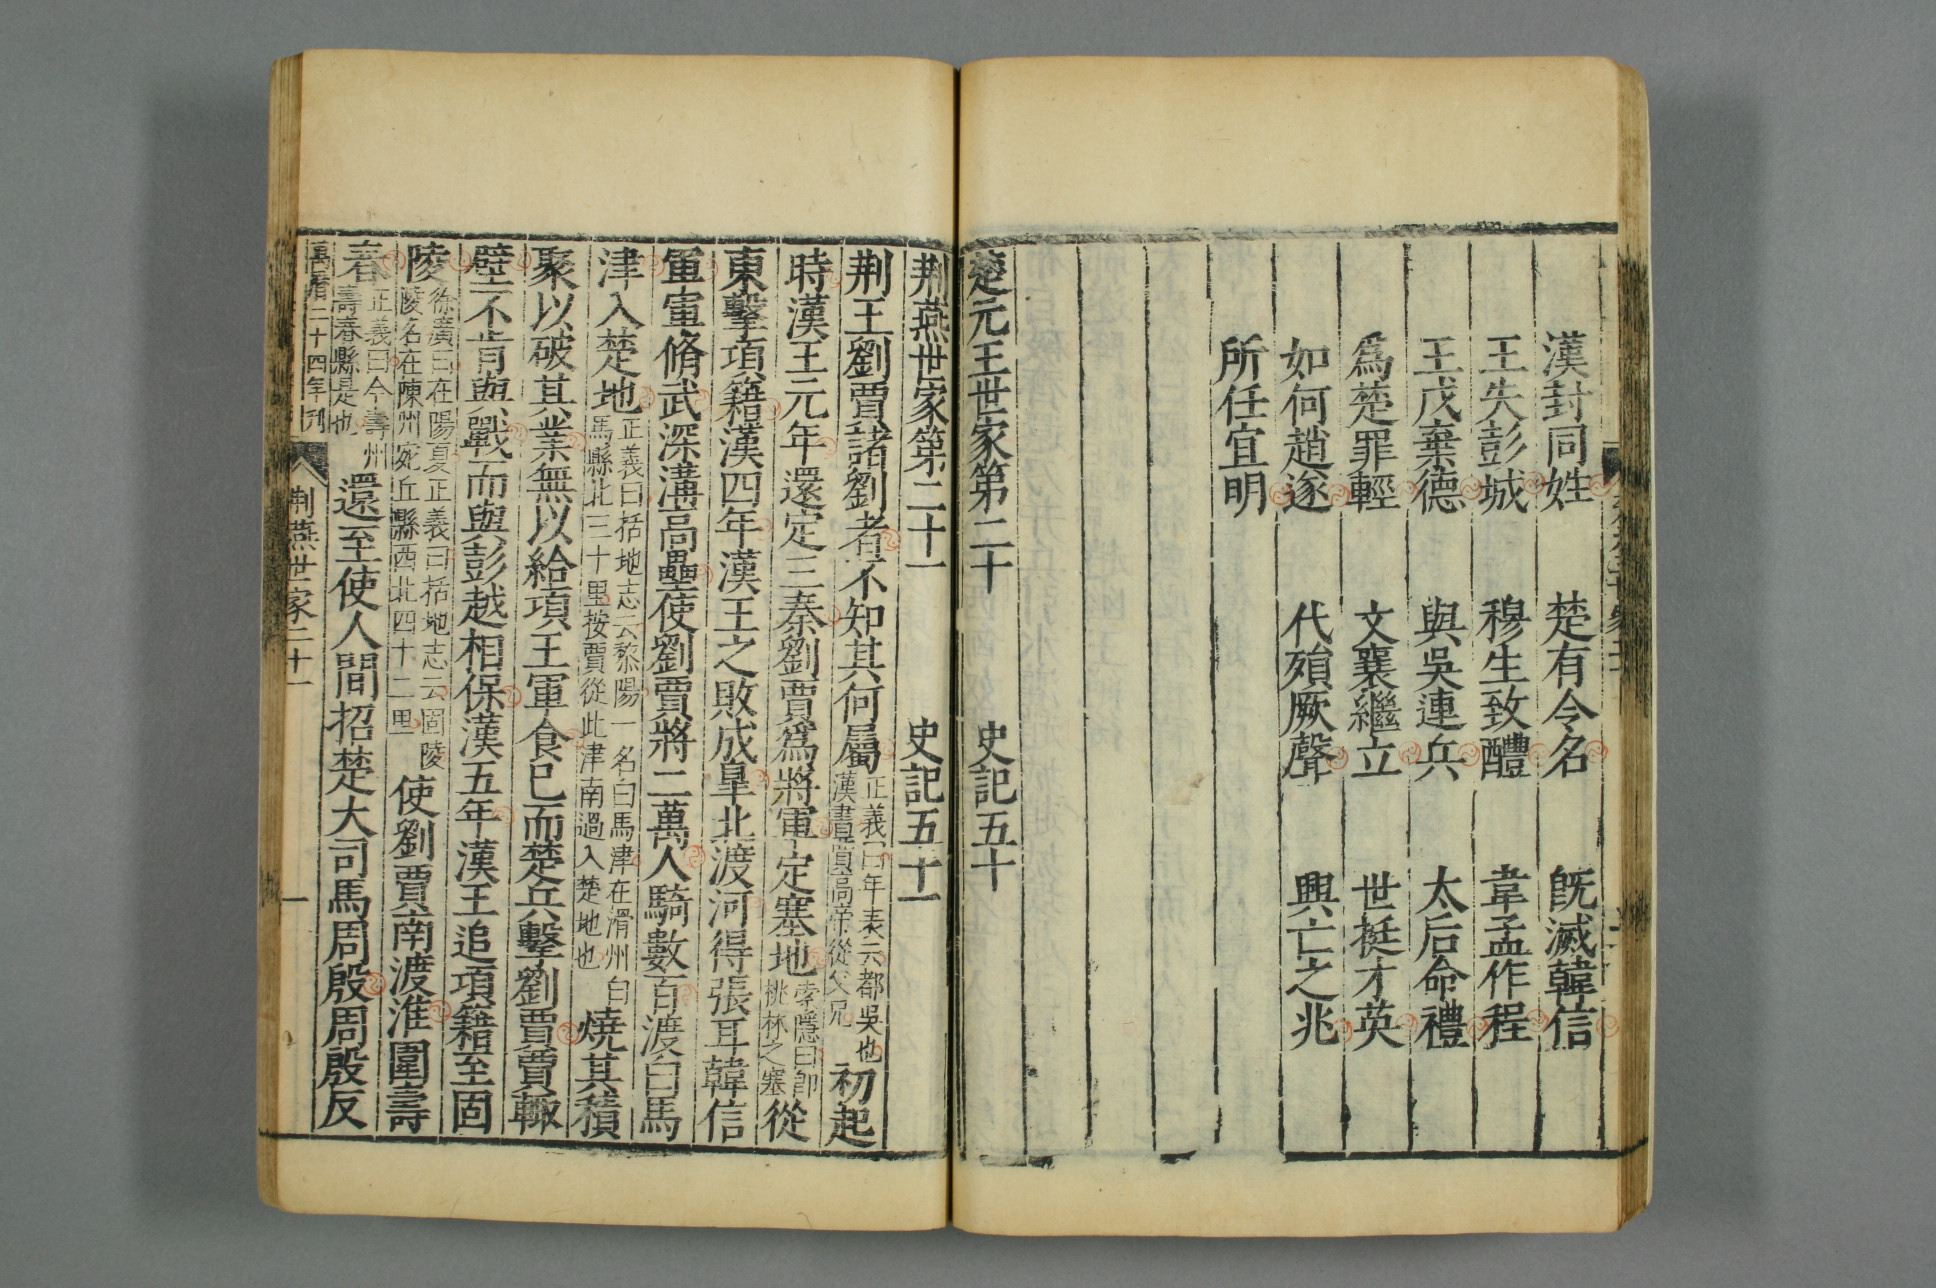 漢封同姓 楚有令名 旣滅韓信
王失彭城 穆生致醴 韋孟作程
王戊棄德 與吳連兵 太后命禮
爲楚罪輕 文襄繼立 世挺才英
如何趙遂 代殞厥聲 興亡之兆
所任宜明
楚元王世家第二十 史記五十
荆燕世家第二十一 史記五十一
荆王劉賈諸劉者不知其何屬
正義曰年表云都吳也
漢書賈高帝從父兄
初起
時漢王元年還定三秦劉賈爲將軍定塞地
索隱曰卽
桃林之塞
從
東擊項籍漢四年漢王之敗成皐北渡河得張耳韓信
軍軍脩武深溝高壘使劉賈將二萬人騎數百渡白馬
津入楚地
正義曰括地志云黎陽一名白馬津在滑州白
馬縣北三十里按賈從此津南過入楚地也
燒其積
聚以破其業無以給項王軍食已而楚兵擊劉賈賈輙
壁不肯與戰而與彭越相保漢五年漢王追項籍至固
陵
徐廣曰在陽夏正義曰括地志云固陵
陵名在陳州宛丘縣西北四十二里
使劉賈南渡淮圍壽
春
正義曰今壽州
壽春縣是也
還至使人間招楚大司馬周殷周殷反
萬曆二十四年刋
荆燕世家二十一
一